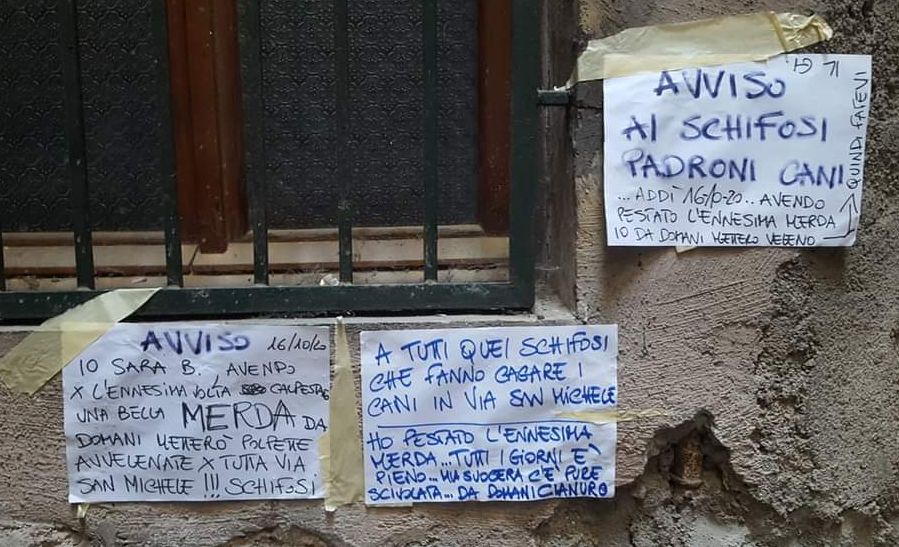 AVVISO
AI SCHIFOSI
PADRONI CANI
...ADDÌ 16/10-20.. AVENDO
PESTATO L'ENNESIMA MERDA
IO DA DOMANI METTERO VELENO →
QUINDI FATEVI
AVVISO 16/10/20
IO SARA B. AVENDO
X L'ENNESIMA VOLTA CALPESTATO
UNA BELLA MERDA DA
DOMANI METTERÒ POLPETTE
AVVELENATE X TUTTA VIA
SAN MICHELE !!! SCHIFOSI
A TUTTI QUEI SCHIFOSI
CHE FANNO CAGARE I
CANI IN VIA SAN MICHELE
HO PESTATO L'ENNESIMA
MERDA... TUTTI I GIORNI E'
PIENO... MIA SUOCERA C'E' PURE
SCIVOLATA... DA DOMANI CIANURO